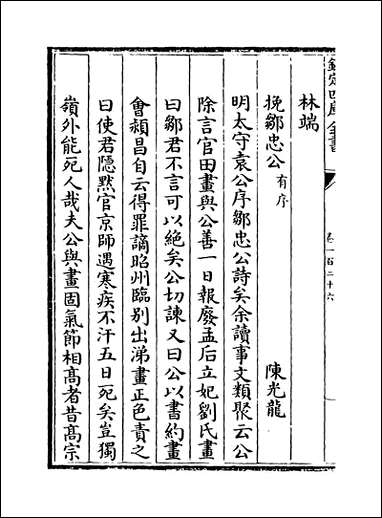 欽定四庫全書
卷一百二十六
林端
挽鄒忠公有序
陳光龍
明太守袁公序鄒忠公詩矣余讀事文類聚云公
除言官田畫與公善一日報廢孟后立妃劉氏畫
曰鄒君不言可以絶矣公切諌又曰公以書約畫
會潁昌自云得罪謫昭州臨别出涕畫正色責之
曰使君隱黙官京師遇寒疾不汗五日死矣豈獨
嶺外能死人哉夫公與畫固氣節相髙者昔髙宗